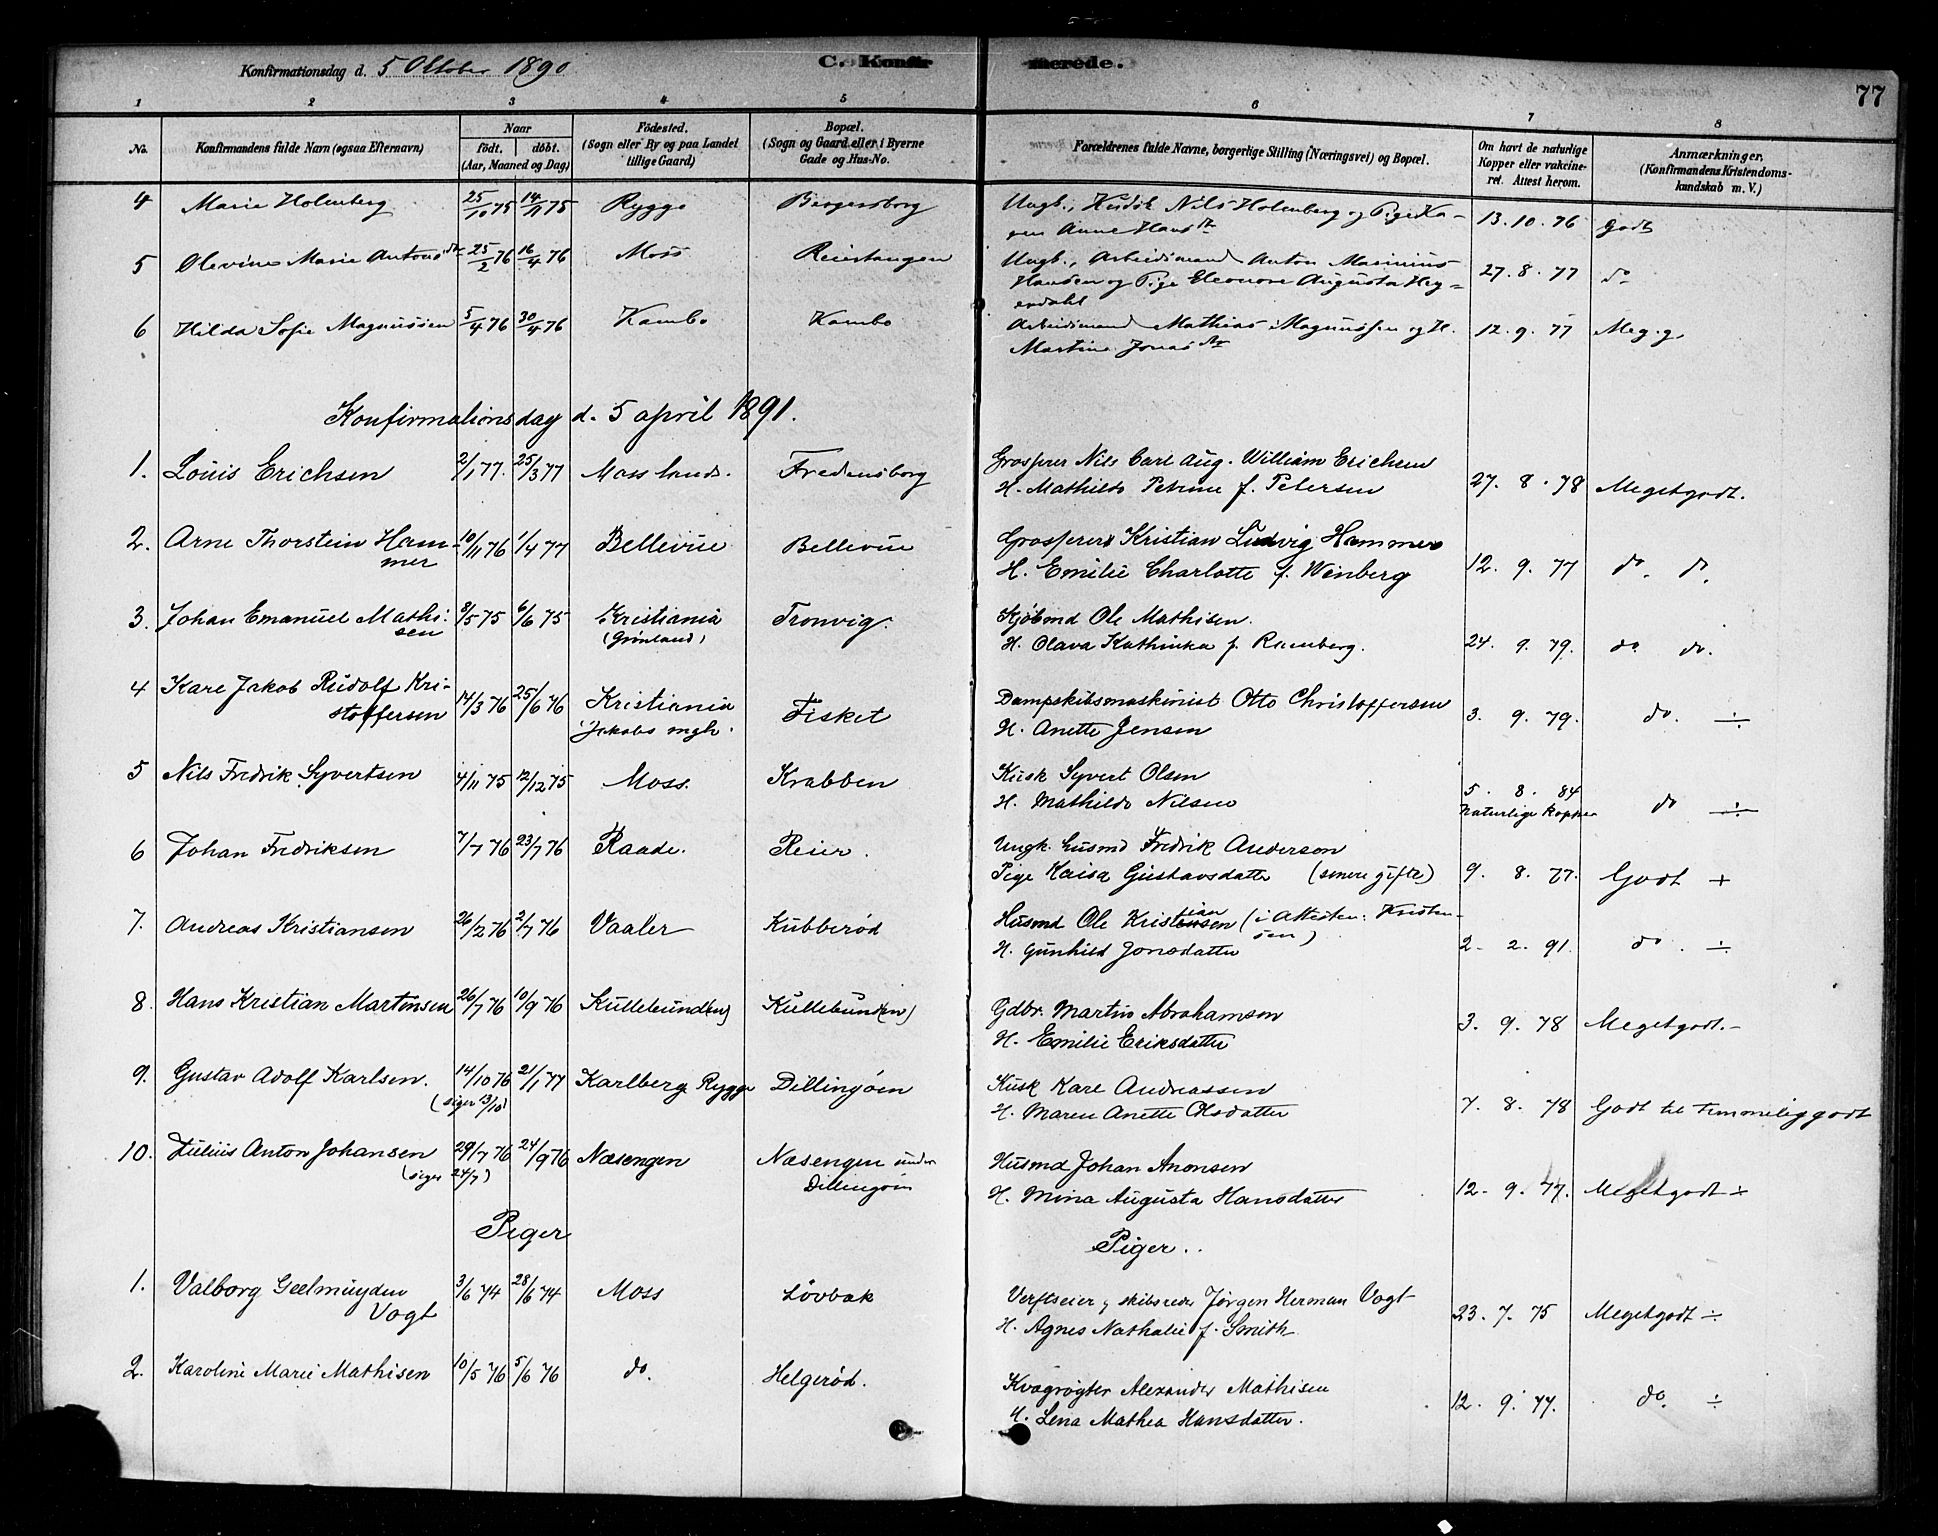 Konfirmationsdag d. 5 Oktober 1890
C. Konfirmerede.
77
1 2 3 4 5 6 7 8
No. Konfirmandens fulde Navn (ogsaa Efternavn) Naar födt. döbt. (Aar, Maaned og Dag) Födested. (Sogn eller By og paa Landet tillige Gaard) Bopæl. (Sogn og Gaard eller i Byerne Gade og Hus-No. Forældrenes fulde Navne, borgerlige Stilling (Næringsvei) og Bopæl. Om havt de naturlige Kopper eller vakcineret. Attest herom. Anmærkninger. (Konfirmandens Kristendomskundskab m. V.)
4 Marie Holenberg 25/10 75 14/11 75 Rygge Bergersborg Ungk., Kudsk Nils Holenberg og Pige Ka-
ren Anne Hansdtr 13.10.76 Godt
5 Olevine Marie Antonsdtr 25/2 76 16/4 76 Moss Reiertangen Ungk., Arbeidsmand Anton Marinius
Hansen og Pige Eleonore Augusta Hey-
erdahl 27.8.77 do
6 Hilda Sofie Magnussen 5/4 76 30/4 76 Kambo Kambo Arbeidsmand Mathias Magnussen og H.
Martine Jonasdtr 12.9.77 Meg. g.
Konfirmationsdag d. 5 april 1891.
1. Louis Erichsen 2/1 77. 25/3 77 Moss lands. Fredensborg Grosserer Nils Carl Aug. William Erichsen
H. Mathilde Petrine f. Petersen 27. 8. 78 Megetgodt.
2. Arne Thorstein Ham-
mer 10/11 76 1/4 77 Bellevue Bellevue Grosserer Kristian Ludvig Hammer
H. Emilie Charlotte f. Weinberg 12. 9. 77 do. do.
3. Johan Emanuel Mathi-
sen 8/5 75 6/6 75 Kristiania
(Grönland) Tronvig. Kjöbmd Ole Mathisen.
H. Olava Kathinka f. Ramberg. 24. 9. 79. do. do.
4 Karl Jakob Rudolf Kri-
stoffersen 14/3 76 25/6 76 Kristiania
Jakobs mgh. Fisket Dampskibsmaskinist Otto Christoffersen
H. Anette Jensen 3. 9. 79. do. ÷
5 Nils Fredrik Syvertsen 4/11 75 12/12 75 Moss. Krabben Kusk Syvert Olsen
H. Mathilde Nilsen 5. 8. 84
Naturlige Kopper do ÷
6 Johan Fredriksen 7/7 76 23/7 76 Raade. Reier. Ungk. husmd Fredrik Anderson
Pige Kaisa Gustavsdatter (senere gifte) 9. 8. 77. Godt +
7. Andreas Kristiansen 26/2 76 2/7 76 Vaaler Kubberöd Husmd Ole Kristiansen (i Attesten: Kristen-
sen)
H. Gunhild Jonsdatter 2. 2. 91. do. ÷
8. Hans Kristian Martinsen 26/7 76 10/9 76 Kullebund(en) Kullebund(en) Gdbr. Martin Abrahamson
H. Emilie Eriksdatter 3. 9. 78 Megetgodt.-
9. Gustav Adolf Karlsen. 14/10 76 21/1 77 Karlberg Rygge Dillingöen Kusk Karl Andreassen
(siger 13/10)
H. Maren Anette Olsdatter 7. 8. 78 Godt til temmelig godt
10. Julius Anton Johansen 29/7 76 24/9 76 Næsengen Næsengen under
Dillingöen Husmd Johan Aronsen
(siger 24/7)
H. Mina Augusta Hansdatter 12. 9. 77. Megetgodt ÷
Piger Piger..
1. Valborg Geelmuyden
Vogt 3/6 74 28/6 74 Moss Lövbak Verftseier og skibsreder Jörgen Herman Vogt
H. Agnes Nathalie f. Smith 23. 7. 75 Megetgodt ÷
2. Karoline Marie Mathisen 10/5 76 5/6 76 do. Helgeröd. Kvægrögter Alexander Mathisen
H. Lena Mathea Hansdatter. 12. 9. 77. do. ÷